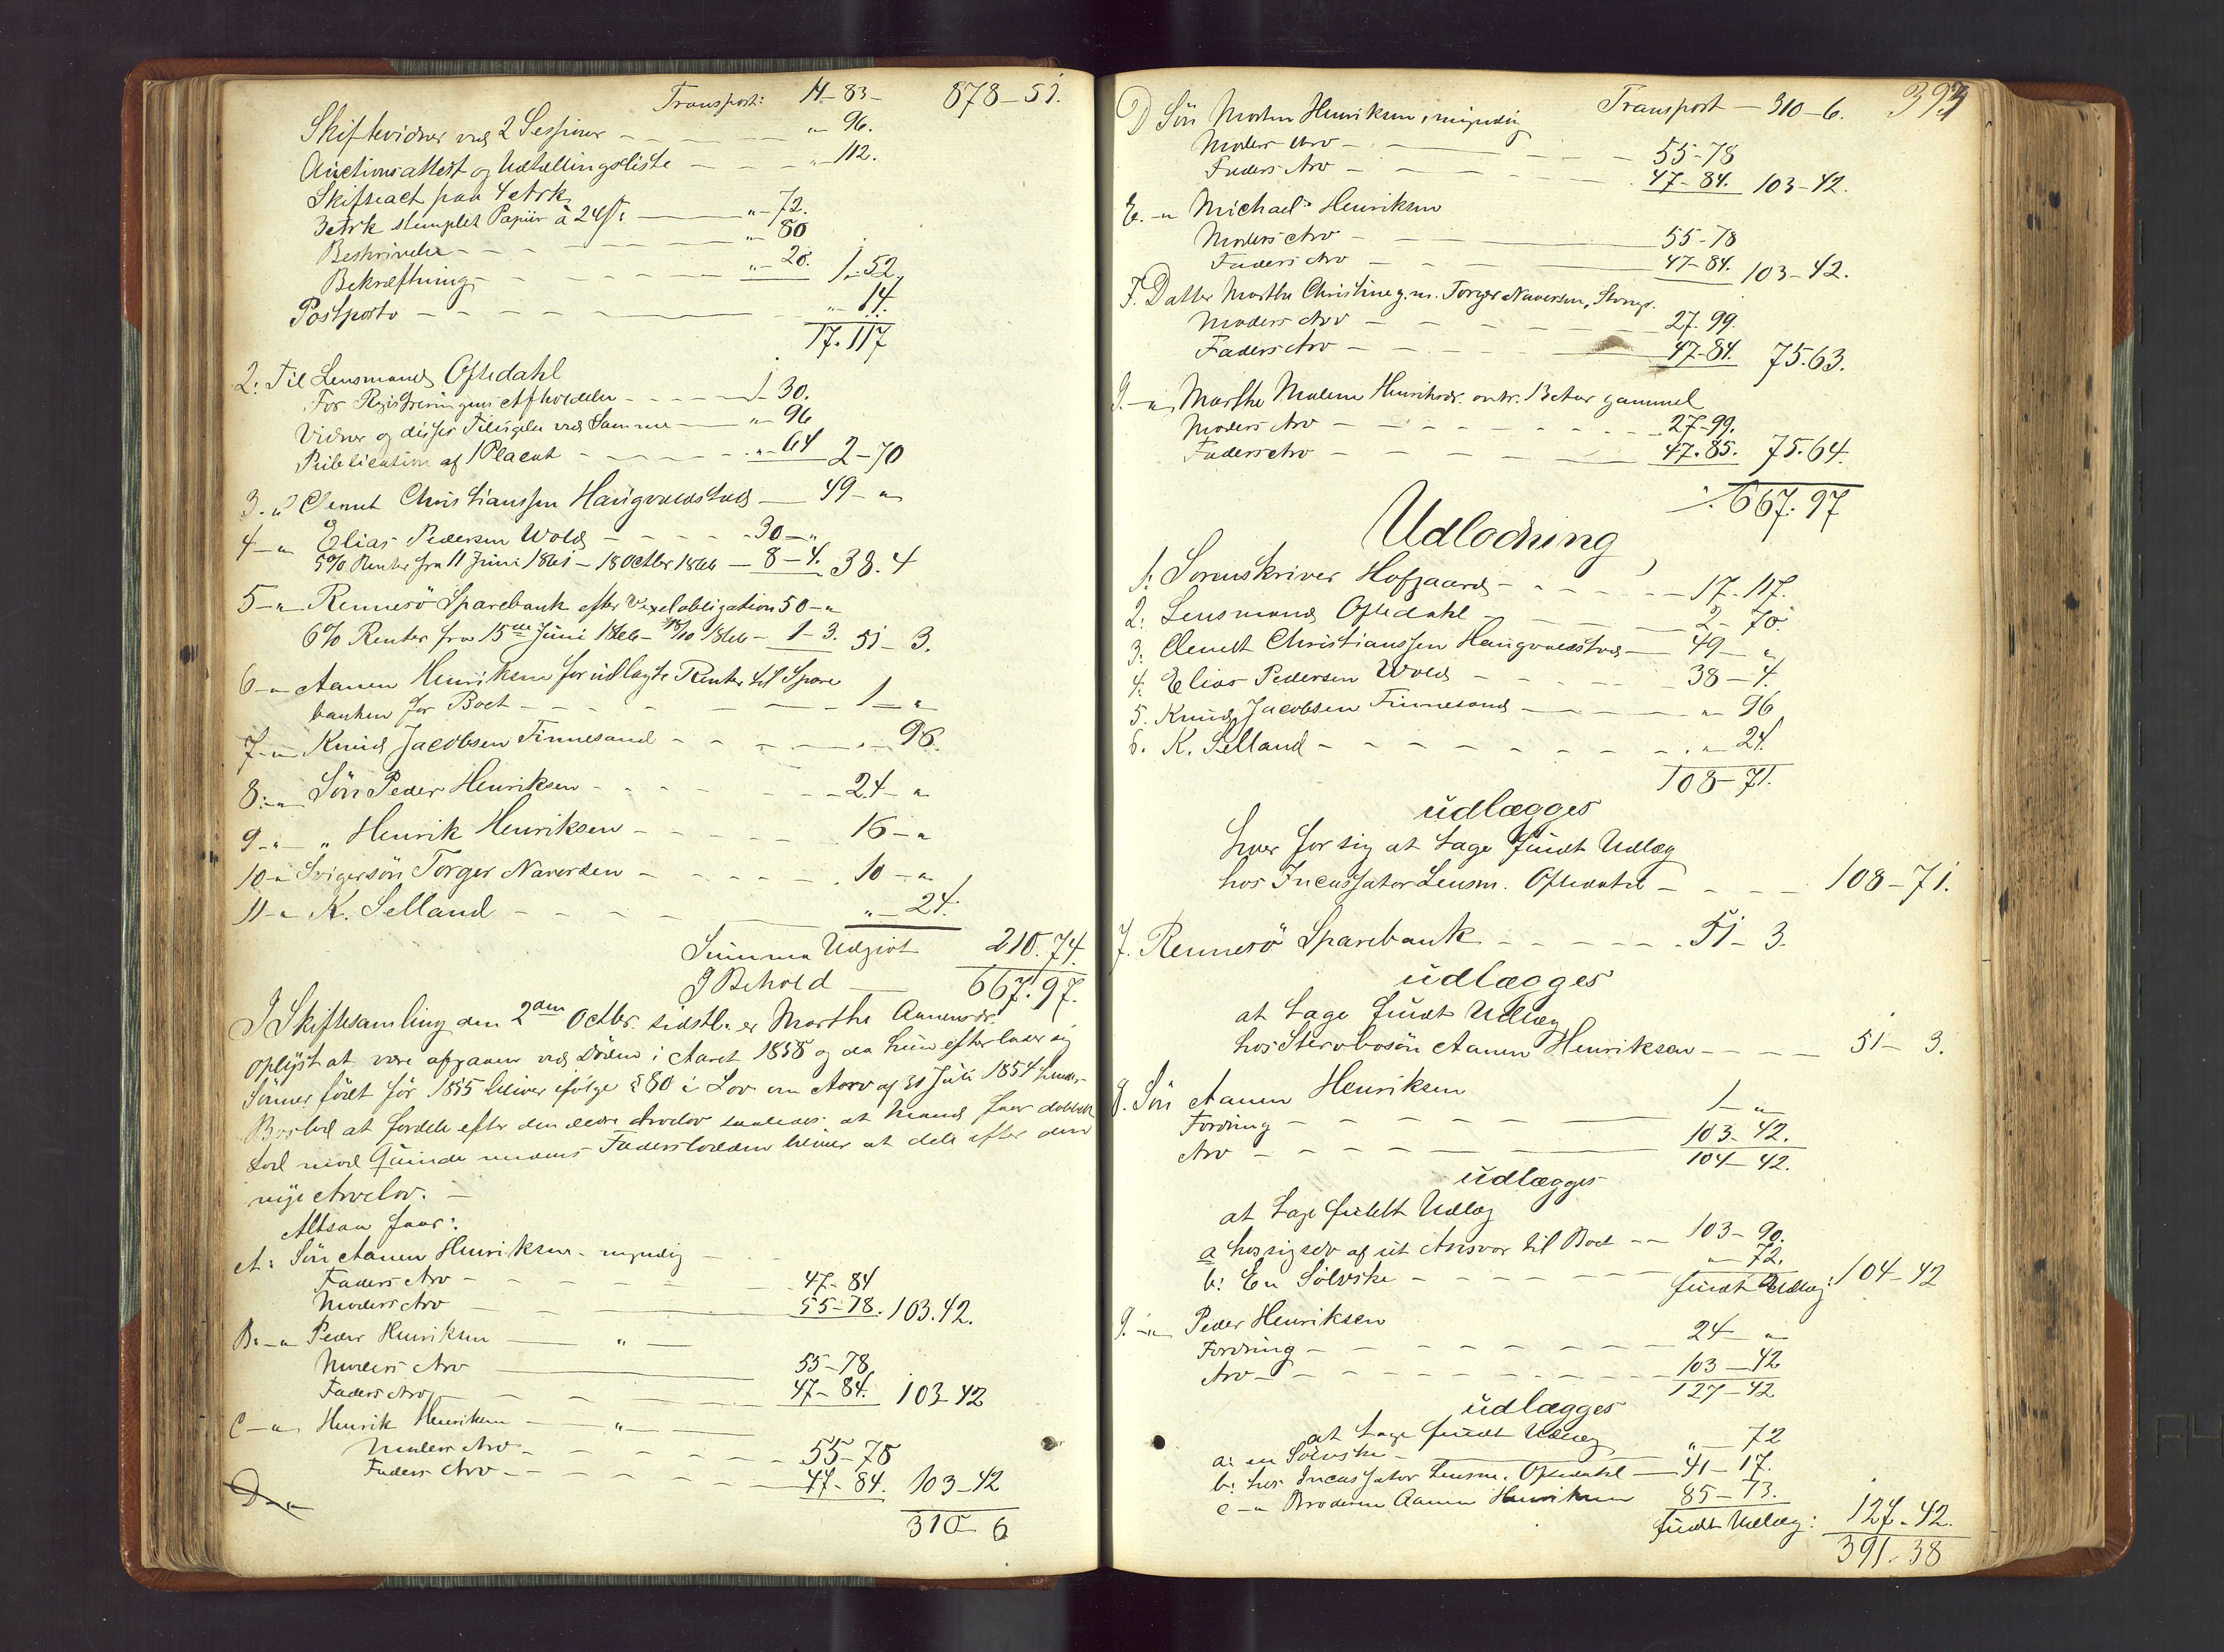 Transport: 14-83- 878-51.
Skiftevidner ved 2 Sessioner - - - - "- 96.
Auctionsattest og Udtællingsliste - - - "- 112.
Skifteact paa 4 Ark
3 Ark stemplet Papiir à 24 s: - "- 72.
Beskrivelse - - - - "- 80
Bekræftning - - - - "- 20. 1-52.
Postporto - - - - "- 14.
17-117
2: Til Lensmand Oftedahl
For Registreringens Afholdelse - - - - 1-30.
Vidner og disses Tilsigelse ved Samme - "- 96
Publication af 1 Placat - - - - "- 64 2-70
3. " Clemet Christianssen Haugvaldstad - 49- "
4 - " Elias Pedersen Wold - - - - 30- "
5% Renter fra 11 Juni 1861 - 18 Octbr 1866 - 8-4. 38.4
5 - " Rennesö Sparebank efter Vexelobligation 50- "
6% Renter fra 15de Juni 1866 - 18/10 1866 - 1-3. 51-3.
6 - " Aanen Henriksen for udlagte Renter til Spare
banken for Boet - - - - 1- "
7 - " Knud Jacobsen Finnesand - - - - "- 96.
8: - " Sön Peder Henriksen - - - - 24- "
9 - " - " Henrik Henriksen - - - - 16- "
10 - " Svigersön Torger Navorsen - - - - 10- "
11 - " K. Selland - - - - "- 24.
Summa Udgivt 210.74.
I Behold - 667.97.
I Skiftesamling den 2den Octbr. sidstl. er Marthe Aanensdr.
oplyst at være afgaaen ved Döden i Aaret 1858 og da hun efterlader sig
Sönner födt för 1855 bliver ifölge § 80 i Lov om Arv af 31 Juli 1854 hendes
Boslod at fordele efter den ældre Arvelov saaledes at Mand faar dobbelt
Lod mod Qvinde medens Faderslodden bliver at dele efter den
nye Arvelov. -
Altsaa faar:
A: Sön Aanen Henriksen - myndig -
Faders Arv - - - - 47-84
Moders Arv - 55-78. 103.42.
B: - " Peder Henriksen - " -
Moders Arv - 55-78
Faders Arv - - - - 47-84. 103-42
C - " Henrik Henriksen - " -
Moders Arv - - - - 55-78
Faders Arv - - - - 47-84. 103-42
D - "
310-6
Transport - 310-6. 393
D Sön Morten Henriksen, myndig
Moders Arv - - - - 55-78
Faders Arv - - - - 47-84. 103-42.
E. - " Michael Henriksen
Moders Arv - - - 55-78
Faders Arv - - - 47-84. 103-42.
F. Datter Marthe Christine g. m. Torger Navorsen,
Moders Arv - - - - 27-99.
Faders Arv - - - - 47-84. 75.63.
G. - " Marthe Malene Henriksdr. omtr. 13 Aar gammel
Moders Arv - - - - 27-99.
Faders Arv - - - - 47.85. 75.64.
667.97
Udlodning
1: Sorenskriver Hofgaard - - - - 17-117.
2: Lensmand Oftedahl - - - 2-70.
3: Clemet Christianssen Haugvaldstad - 49- "
4: Elias Pedersen Wold - - - - 38-4.
5. Knud Jacobsen Finnesand - - - "- 96
6. K. Selland - - - - "- 24.
108-71.
udlægges
hver for sig at tage fuldt Udlæg
hos Incassator Lensm. Oftedahl - - - - 108-71.
7. Rennesö Sparebank - - - - 51-3.
udlægges
at tage fuldt Udlæg
hos Stervbosön Aanen Henriksen - - - - 51-3.
8. Sön Aanen Henriksen
Fordring - - - - 1- "
Arv - - - - 103-42.
104-42.
udlægges
at tage fuldt Udlæg
a hos sig selv af sit Ansvar til Boet - - 103-90.
b: En Sölvske - - - - "- 72.
fuldt Udlæg: 104-42
9. - " Peder Henriksen
Fordring - - - - 24- "
Arv - - - - 103-42
127-42
udlægges
at tage fuldt Udlæg
a: en Sölvske - "- 72
b: hos Incassator Lensm. Oftedahl - 41-17.
c - " Broderen Aanen Henriksen 85-73.
fuldt Udlæg: 127-42.
391-38